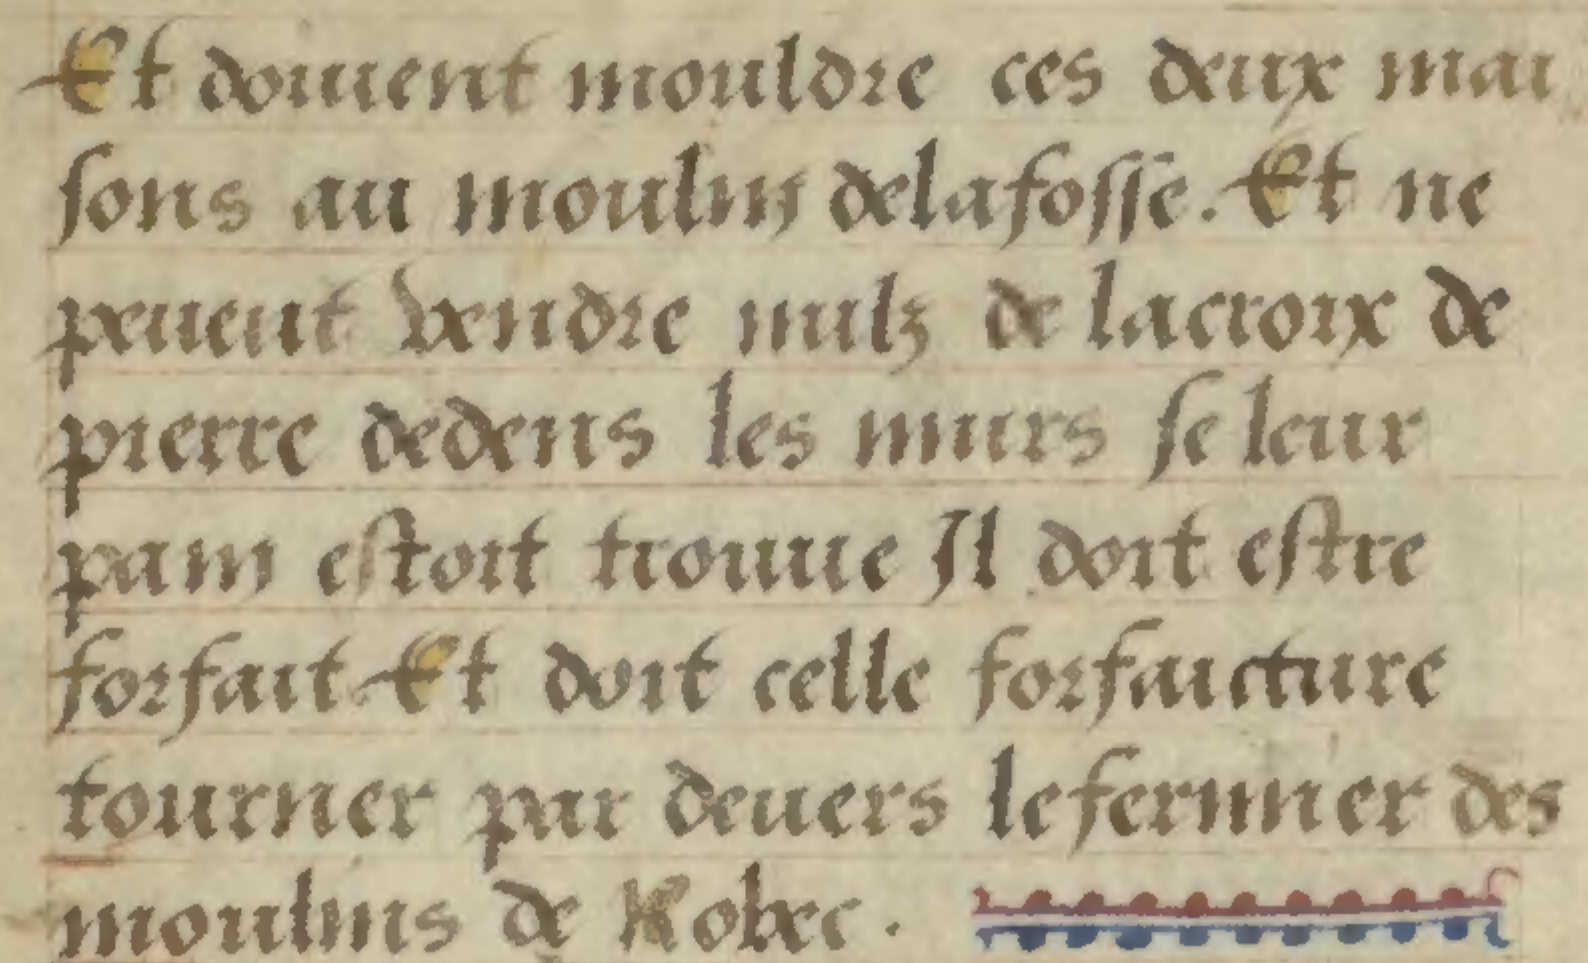 Et doiuent mouldre ces deux mai
sons au moulin delafosse. Et ne
peuent vendre nulz de lacroix de
pierre dedens les murs se leur
pain estoit trouue Il doit estre
forfait Et doit celle forfaicture
tourner par deuers le fermier des
moulins de Robec.